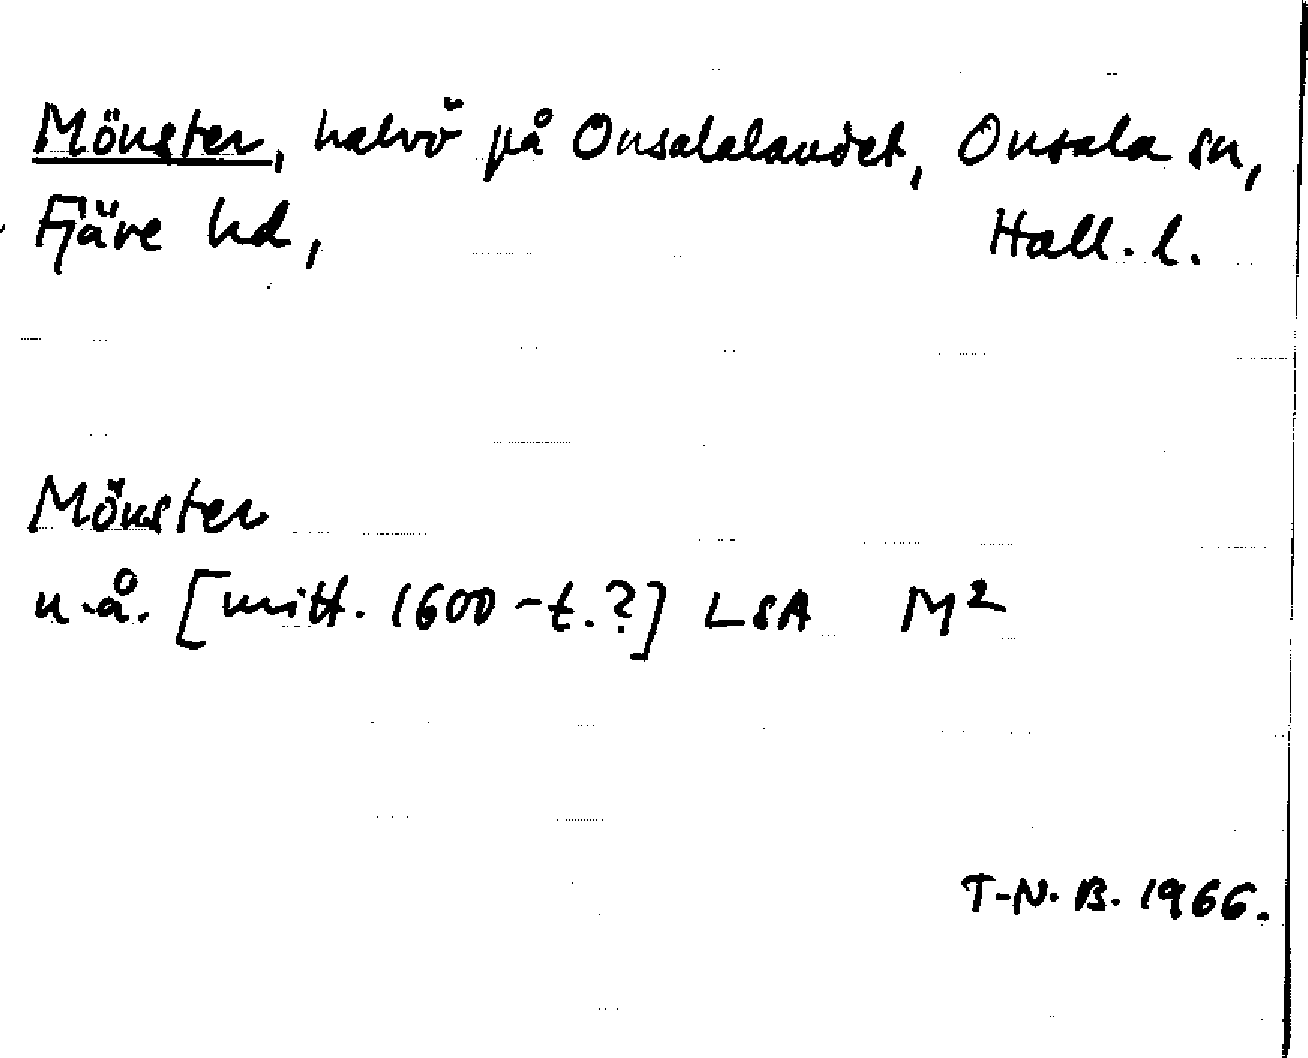 Mönster, halvö på Onsalalandet, Onsala sn,
Fjäre hd, Hall. l.
Mönster
u.å. [mitt. 1600-t.?] LSA M2
T-N. B. 1966.